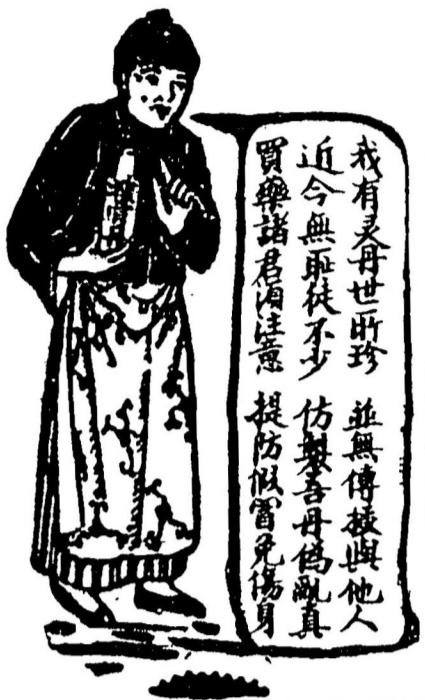 我有灵丹世所珍 並無傳授與他人
近今無耻徒不少 仿製吾丹偽亂真
買藥諸君湏注意 提防假冒免傷身